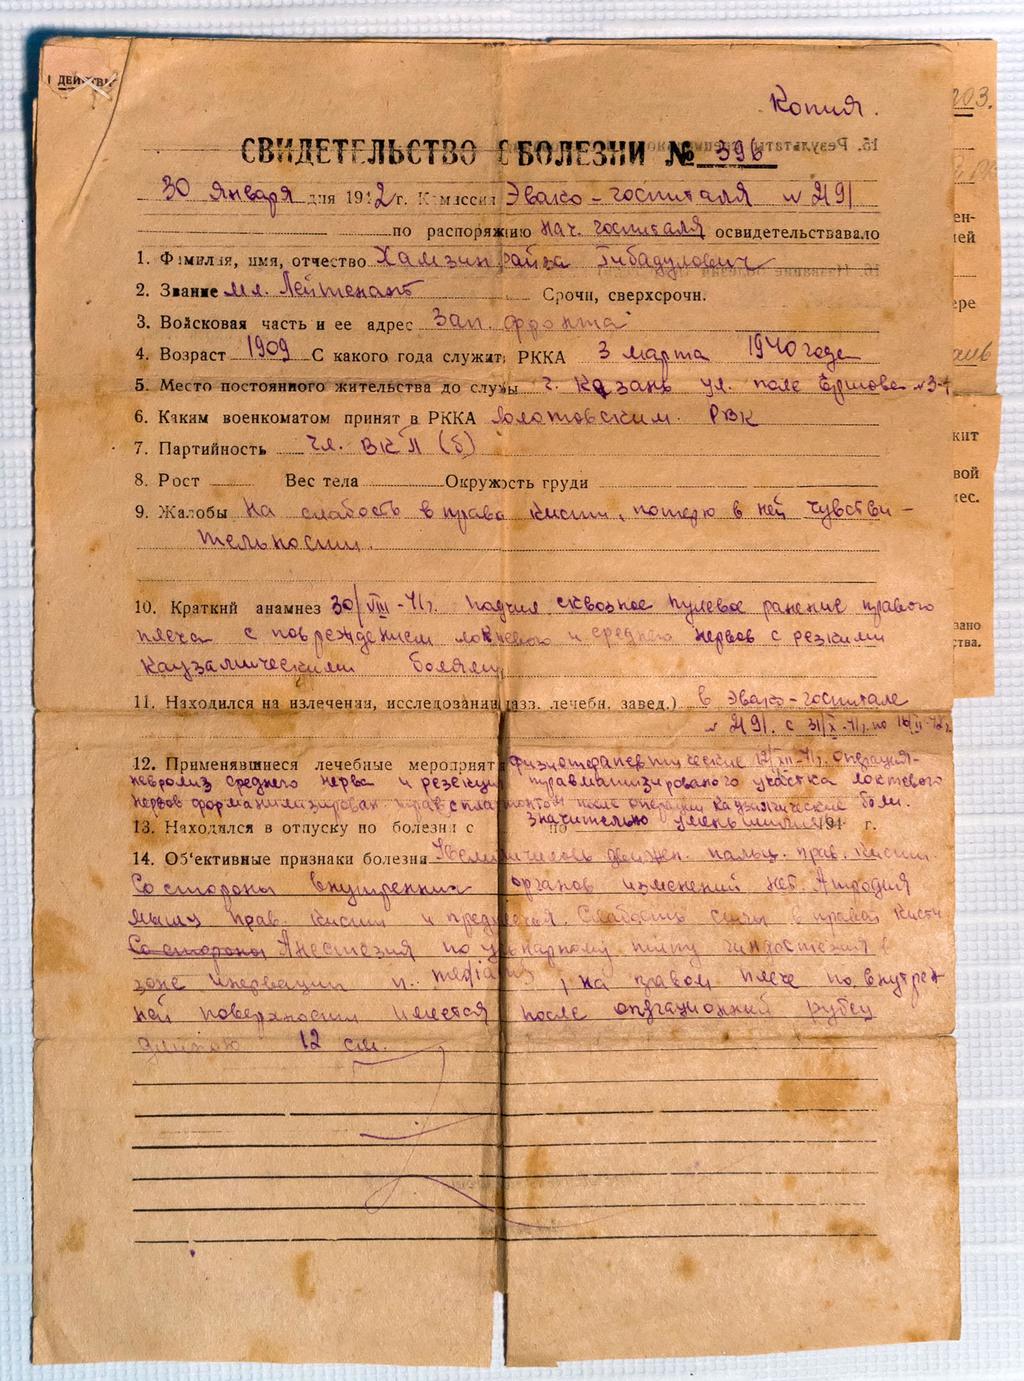 Копия.
СВИДЕТЕЛЬСТВО О БОЛЕЗНИ № 396
30 Января дня 1942 г. Комиссия Эвако-госпиталя № 2191
по распоряжию нач. госпиталя освидетельствавало
1. Фамилия, имя, отчество Хамзин Гибадулович
2. Звание мл. Лейтенант Срочн, сверхсрочн.
3. Войсковая часть и ее адрес Зап. фронта
4. Возраст 1909 С какого года служит РККА 3 марта 1940 года
5. Место постоянного жительства до службы г. Казань ул. поле Ершова № 3-
6. Каким военкоматом принят в РККА Молотовским РВК
7. Партийность Чл. ВКП(б)
8. Рост Вес тела Окружность груди
9. Жалобы На слабость в права кисти, потерю в ней чувстви-
тельности.
10. Краткий анамнез 30/VIII-41г. Падчил сквозное пулевое ранение правого
плеча с повреждением локтевого и среднего нервов с резкими
каузалгическими болями
11. Находился на излечении, исследовании (назв. лечебн. завед.) в Эвако-госпитале
№ 2191. с 31/X-41г. по 16/II-42г.
12. Применявшиеся лечебные мероприят физиотерапевтические 12/XII-41г. операция-
невролиз среднего нерва и резекция травматизированого участка локтевого
нервов после операции каузалгические боли.
13. Находился в отпуску по болезни с по 194 г. значительно уменьшились
14. Об'ективные признаки болезни движен. пальц. прав. кисти.
Со стороны внутренних органов изменений нет. Атрофия
мышц прав. кисти и предплечья. Слабость силы в правой кисти
Со стороны Анестезия по ульнарному типу в
зоне инервации n. medianus, на правом плече по внутрен
ней поверхности имеется после операционный рубец
длиною 12 см.